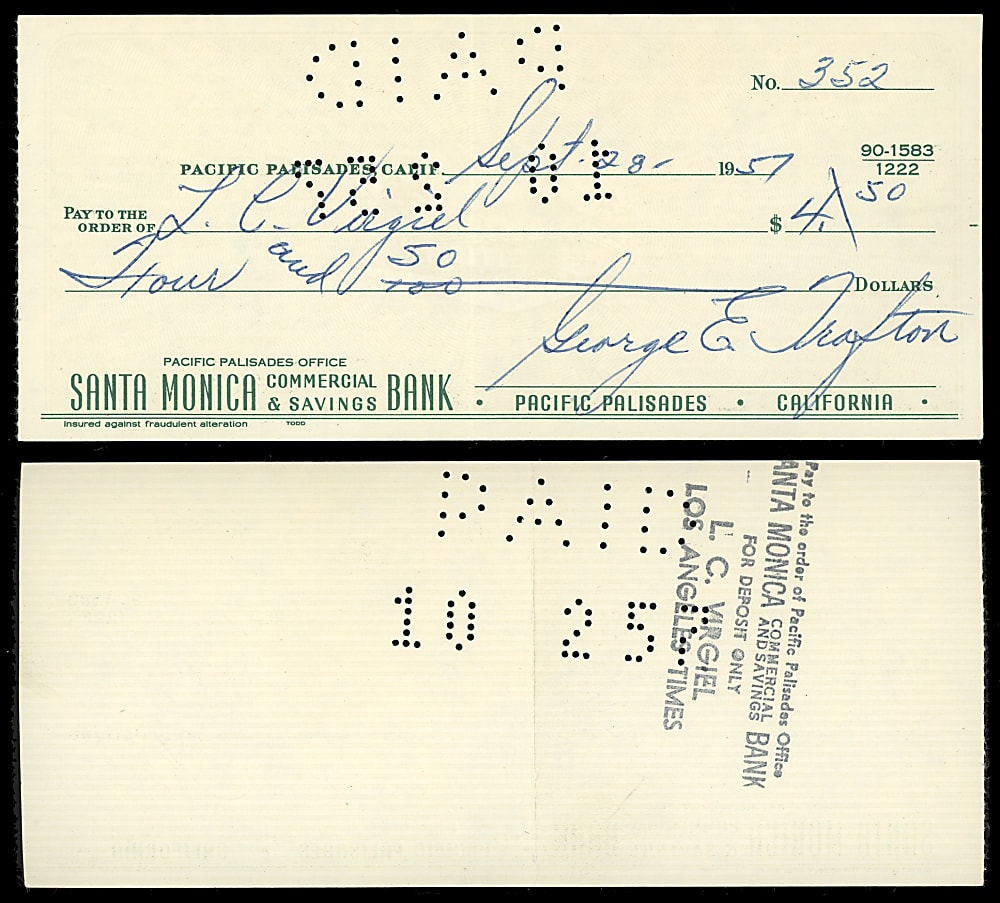 PAID
No. 352
PACIFIC PALISADES, CALIF. Sept. 28- 1957 90-1583
1222
PAY TO THE
ORDER OF L. C. Virgiel $ 4. 50
Four and 50/100 DOLLARS
George E Trafton
PACIFIC PALISADES OFFICE
SANTA MONICA COMMERCIAL & SAVINGS BANK • PACIFIC PALISADES • CALIFORNIA •
Insured against fraudulent alteration TODD
PAID
10 25
Pay to the order of Pacific Palisades Office
SANTA MONICA COMMERCIAL AND SAVINGS BANK
FOR DEPOSIT ONLY
L. C. VIRGIEL
LOS ANGELES TIMES